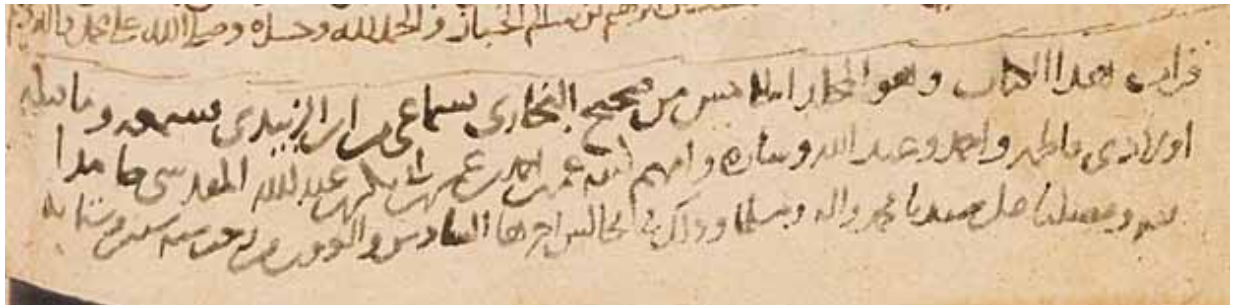 بن مسلم الخباز والحمد لله وحده وصلى الله على محمد واله
قرات هذا الكتاب وهو المجلد الخامس من صحيح البخاري بسماعي من ابن الزبيدي فسمعه وما قبله
اولادي فاطمه واحمد وعبد الله وساره وامهم احمد بن عمر بن ابي بكر بن عبد الله المقدسي حامدا
لله ومصليا على سيدنا محمد واله ومسلما وذلك في مجالس اخرها السادس من رجب سنه ستين وستمايه